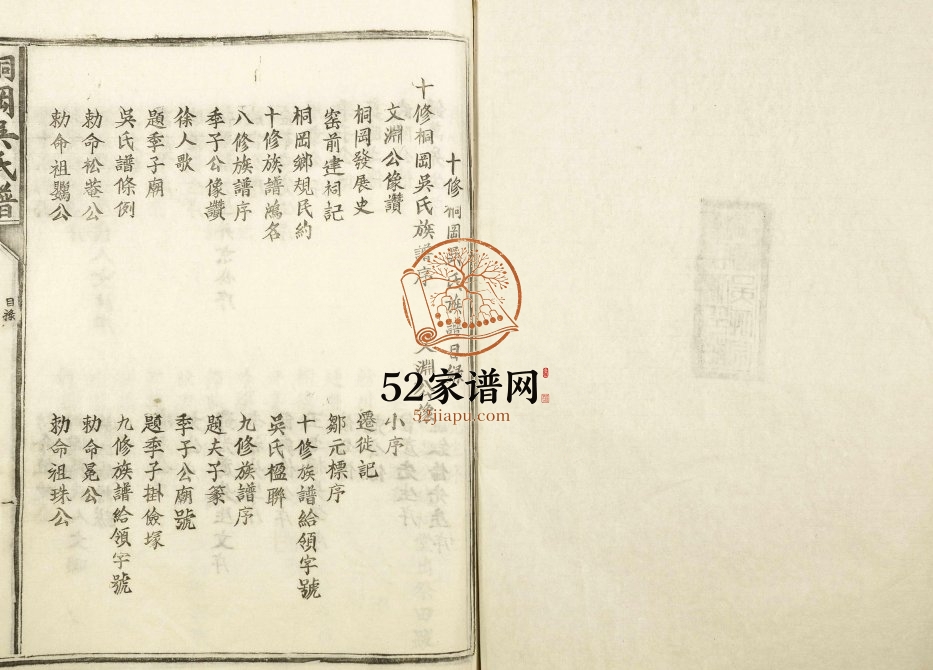 十修桐岡吳氏族譜目錄
十修桐岡吳氏族譜序
文淵公像
文淵公像讚
小序
桐岡發展史
遷徙記
窑前建祠記
鄒元標序
桐岡鄉規民約
十修族譜給領字號
十修族譜鴻名
吳氏楹聯
八修族譜序
九修族譜序
季子公像讚
題夫子篆
徐人歌
季子公廟號
題季子廟
題季子掛儉塚
吳氏譜條例
九修族譜給領字號
勅命松菴公
勅命冕公
勅命祖鸚公
勅命祖珠公
桐岡吳氏譜
目錄
一
52家谱网
52jiapu.com